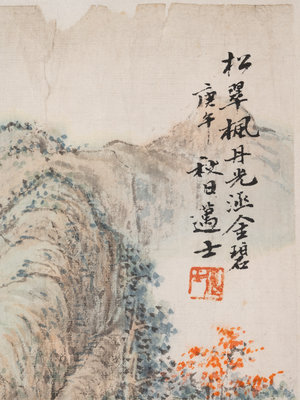 松翠楓丹光涵金碧
庚午
秋日邁士